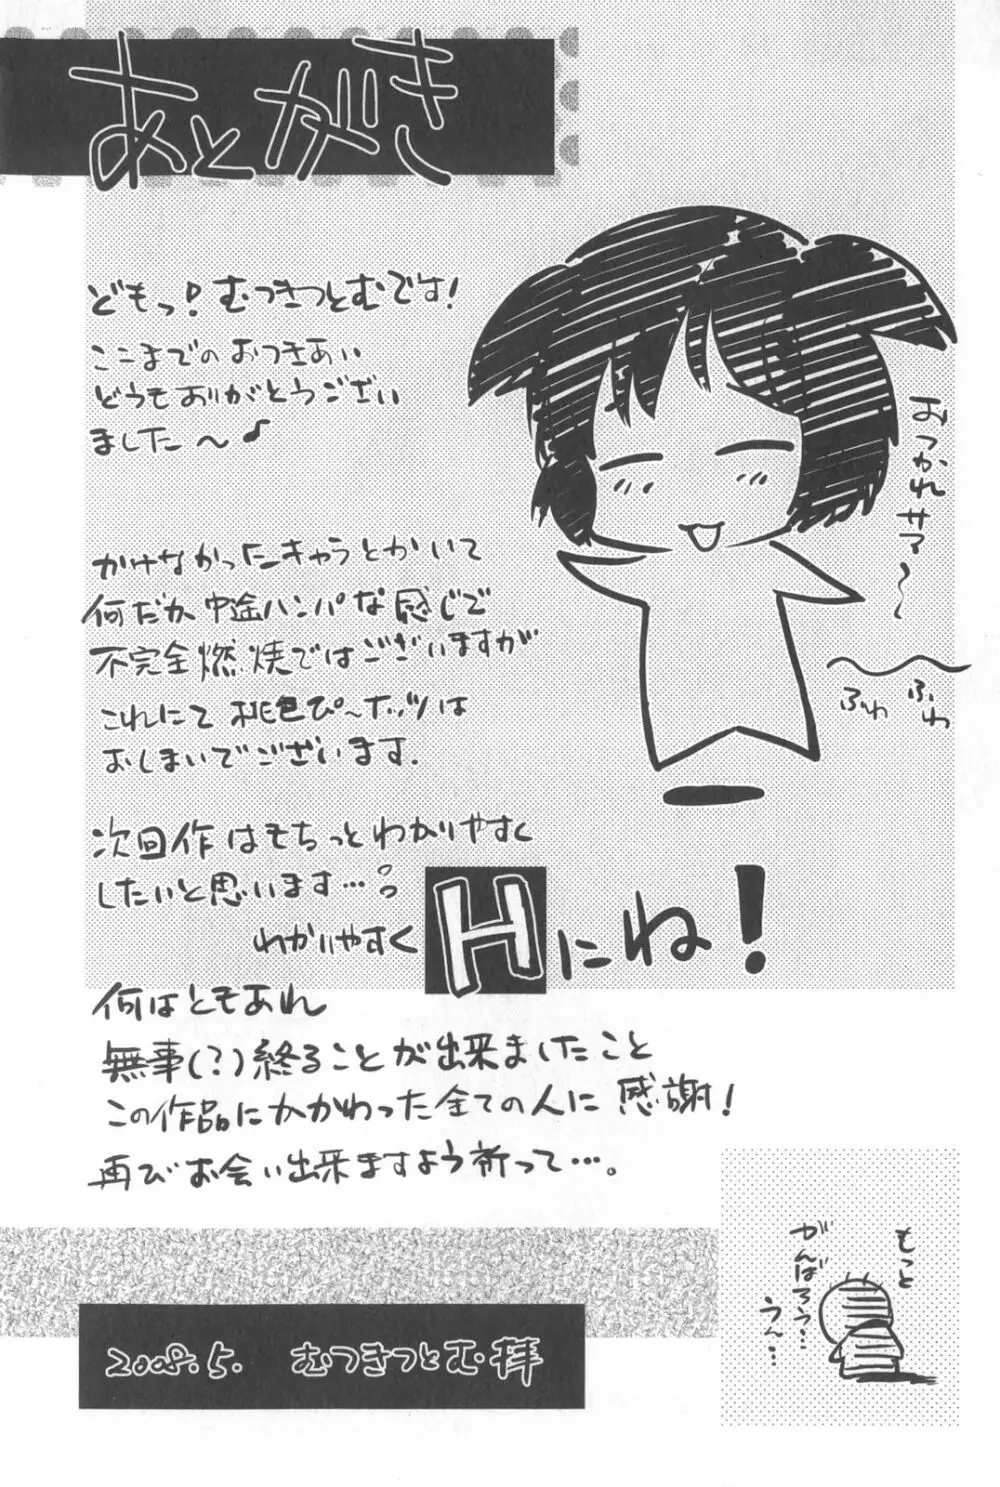 あとがき
どもっ!むつきつとむです!
ここまでのおつきあい
どうもありがとうござい
ました～♪
かけなかったキャラとかいて
何だか中途ハンパな感じで
不完全燃焼ではございますが
これにて桃色ぴ～ホッツは
おしまいでございます.
次回作はもちっとわかりやすく
したいと思います…。
わかりやすくHにね!
何はともあれ
無事(?)終ることが出来ましたこと
この作品にかかわった全ての人に感謝!
再びお会い出来ますよう祈って…。
おつかれサマ～～
ふわ
ふわ
もっと
がんばろう…
うん…
2008.5. むつきつとむ拝